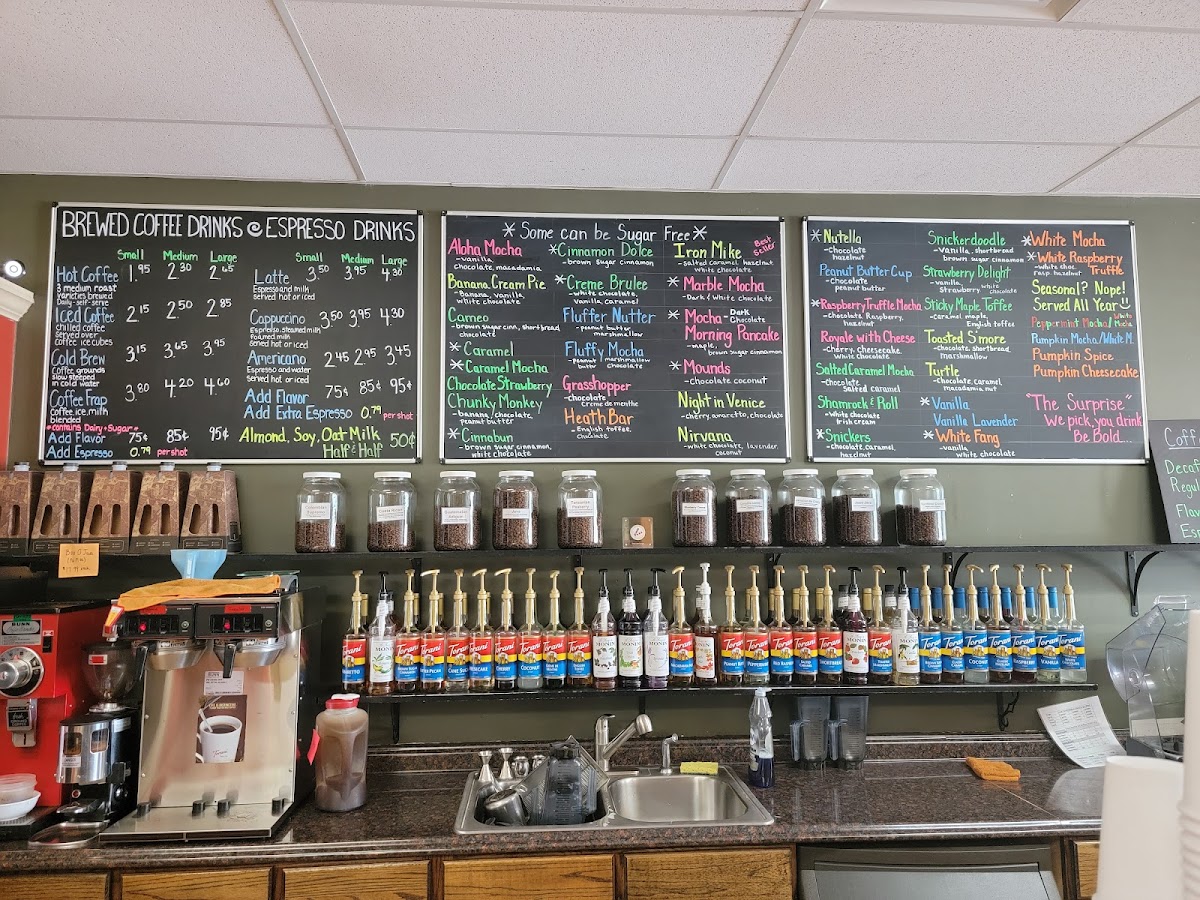 BREWED COFFEE DRINKS @ ESPRESSO DRINKS
Small Medium Large
Hot Coffee 1.95 2.30 2.65
3 medium roast
varieties brewed
Daily - self-serve
Iced Coffee 2.15 2.50 2.85
chilled coffee
served over
coffee ice cubes
Cold Brew 3.15 3.65 3.95
Coffee grounds
slow steeped
in cold water
Coffee Frap 3.80 4.20 4.60
coffee, ice, milk
blended
*contains Dairy + Sugar*
Add Flavor 75¢ 85¢ 95¢
Add Espresso 0.79 per shot
Small Medium Large
Latte 3.50 3.95 4.30
Espresso and milk
served hot or iced
Cappuccino 3.50 3.95 4.30
Espresso, steamed milk
foamed milk
served hot or iced
Americano 2.45 2.95 3.45
Espresso and water
served hot or iced
Add Flavor 75¢ 85¢ 95¢
Add Extra Espresso 0.79 per shot
Almond, Soy, Oat Milk 50¢
Half & Half
* Some can be Sugar Free *
Aloha Mocha
-vanilla,
chocolate, macadamia
Banana Cream Pie
-Banana, vanilla,
white chocolate
Cameo
-brown sugar cinn, shortbread,
chocolate
*Caramel
*Caramel Mocha
Chocolate Strawberry
Chunky Monkey
-banana, chocolate,
peanut butter
*Cinnabun
-brown sugar cinnamon,
white chocolate
*Cinnamon Dolce
-brown sugar cinnamon
*Creme Brulee
-white chocolate,
vanilla, caramel
Fluffer Nutter
-peanut butter
marshmallow
Fluffy Mocha
-peanut butter / marshmallow
chocolate
Grasshopper
-chocolate
Creme de menthe
Heath Bar
-English toffee,
chocolate
Iron Mike Best Seller
-salted caramel, hazelnut
white chocolate
*Marble Mocha
-Dark & white chocolate
*Mocha -Dark Chocolate
Morning Pancake
-maple,
brown sugar cinnamon
*Mounds
-chocolate coconut
Night in Venice
-cherry, amaretto, chocolate
Nirvana
-white chocolate, lavender,
coconut
*Nutella
-chocolate
hazelnut
Peanut Butter Cup
-chocolate
peanut butter
*Raspberry Truffle Mocha
-chocolate, Raspberry,
hazelnut
Royale with Cheese
-cherry, cheesecake,
white chocolate
Salted Caramel Mocha
-chocolate
salted caramel
Shamrock & Roll
-white chocolate
Irish cream
*Snickers
-chocolate, caramel,
hazelnut
Snickerdoodle
-Vanilla, shortbread
brown sugar cinnamon
Strawberry Delight
-vanilla, white
strawberry chocolate
Sticky Maple Toffee
-caramel, maple,
English toffee
Toasted S'more
-chocolate, shortbread
marshmallow
Turtle
-chocolate, caramel
macadamia nut
*Vanilla
Vanilla Lavender
*White Fang
-vanilla
white chocolate
*White Mocha
*White Raspberry
Truffle
-white choc.
rasp. hazelnut
Seasonal? Nope!
Served All Year
Peppermint Mocha/White Mocha
Pumpkin Mocha/White M.
Pumpkin Spice
Pumpkin Cheesecake
"The Surprise"
We pick, you drink
Be Bold...
Decaf
Regul
Flav
Es
BUNN
Torani
MONIN
COCONUT
PEPPERMINT
SHORTBREAD
COCONUT
RASPBERRY
VANILLA